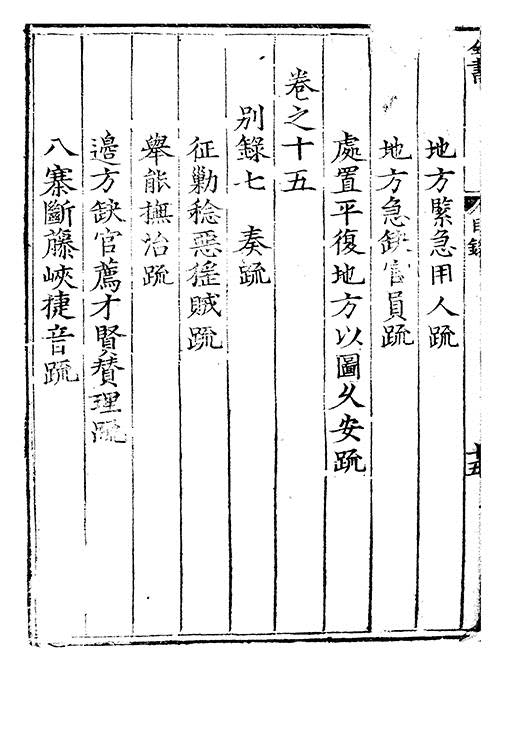 全書
目錄
十五
地方緊急用人疏
地方急缺官員疏
處置平復地方以圖久安疏
卷之十五
別錄七　奏疏
征勦稔惡猺賊疏
舉能撫治疏
邊方缺官薦才贊理疏
八寨斷藤峽捷音疏